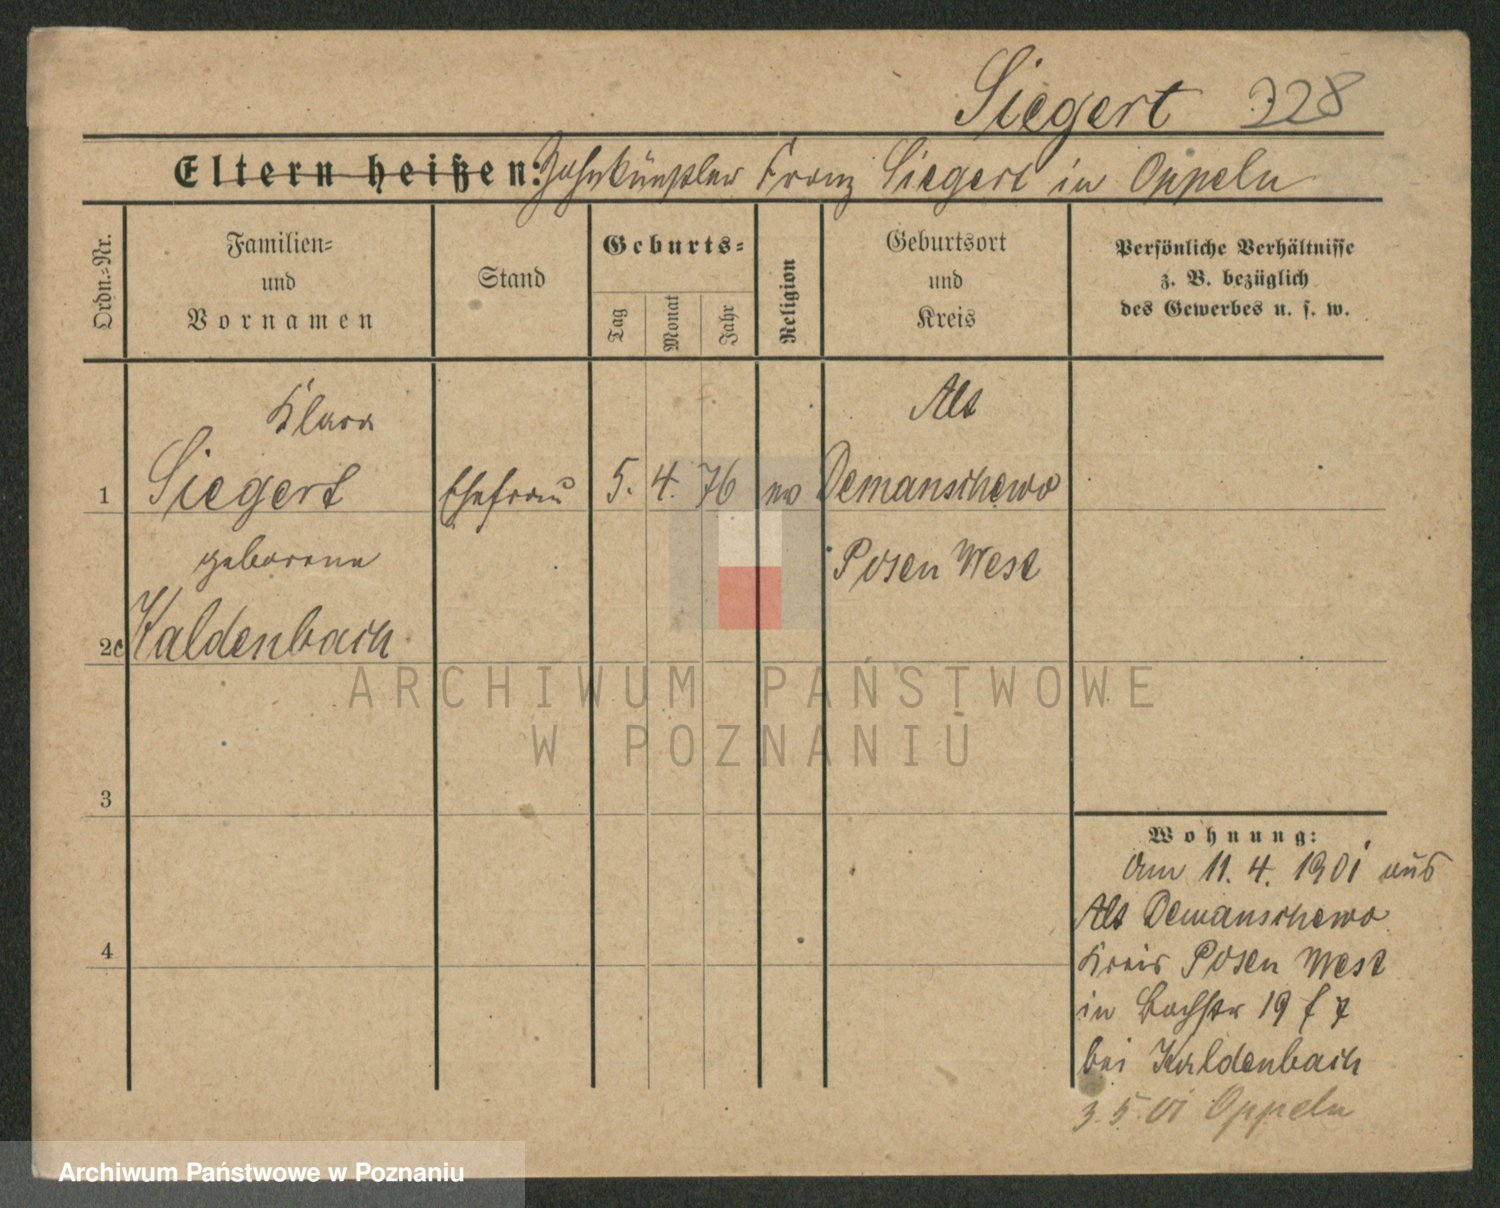 Siegert 328
Eltern heißen: Zahnkünstler Franz Siegert in Oppeln
Ordn.-Nr.
Familien-
und
Vornamen
Stand
Geburts-
Tag
Monat
Jahr
Religion
Geburtsort
und
Kreis
Persönliche Verhältnisse
z. B. bezüglich
des Gewerbes u. s. w.
Klara
Alt
1 Siegert Ehefrau 5. 4. 76 ev Demanschewo
geborene
Posen West
2 Kaldenbach
ARCHIWUM PAŃSTWOWE
W POZNANIU
3
4
Wohnung:
Am 11. 4. 1901 aus
Alt Demanschewo
Kreis Posen West
in Bachstr 19
bei Kaldenbach
3. 5. 01 Oppeln
Archiwum Państwowe w Poznaniu